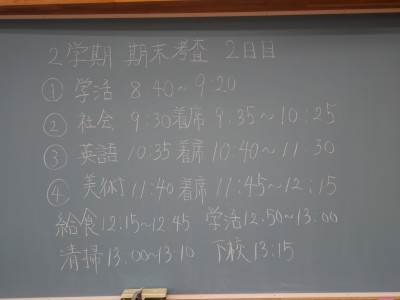 2学期 期末考査 2日目
① 学活 8 40～9.20
② 社会 9:30着席 9.35～10:25
③ 英語 10:35着席 10:40～11.30
④ 美術 11:40着席 11:45～12:15
給食12.15～12 45 学活12.50～13.00
清掃13.00～13.10 下校13:15